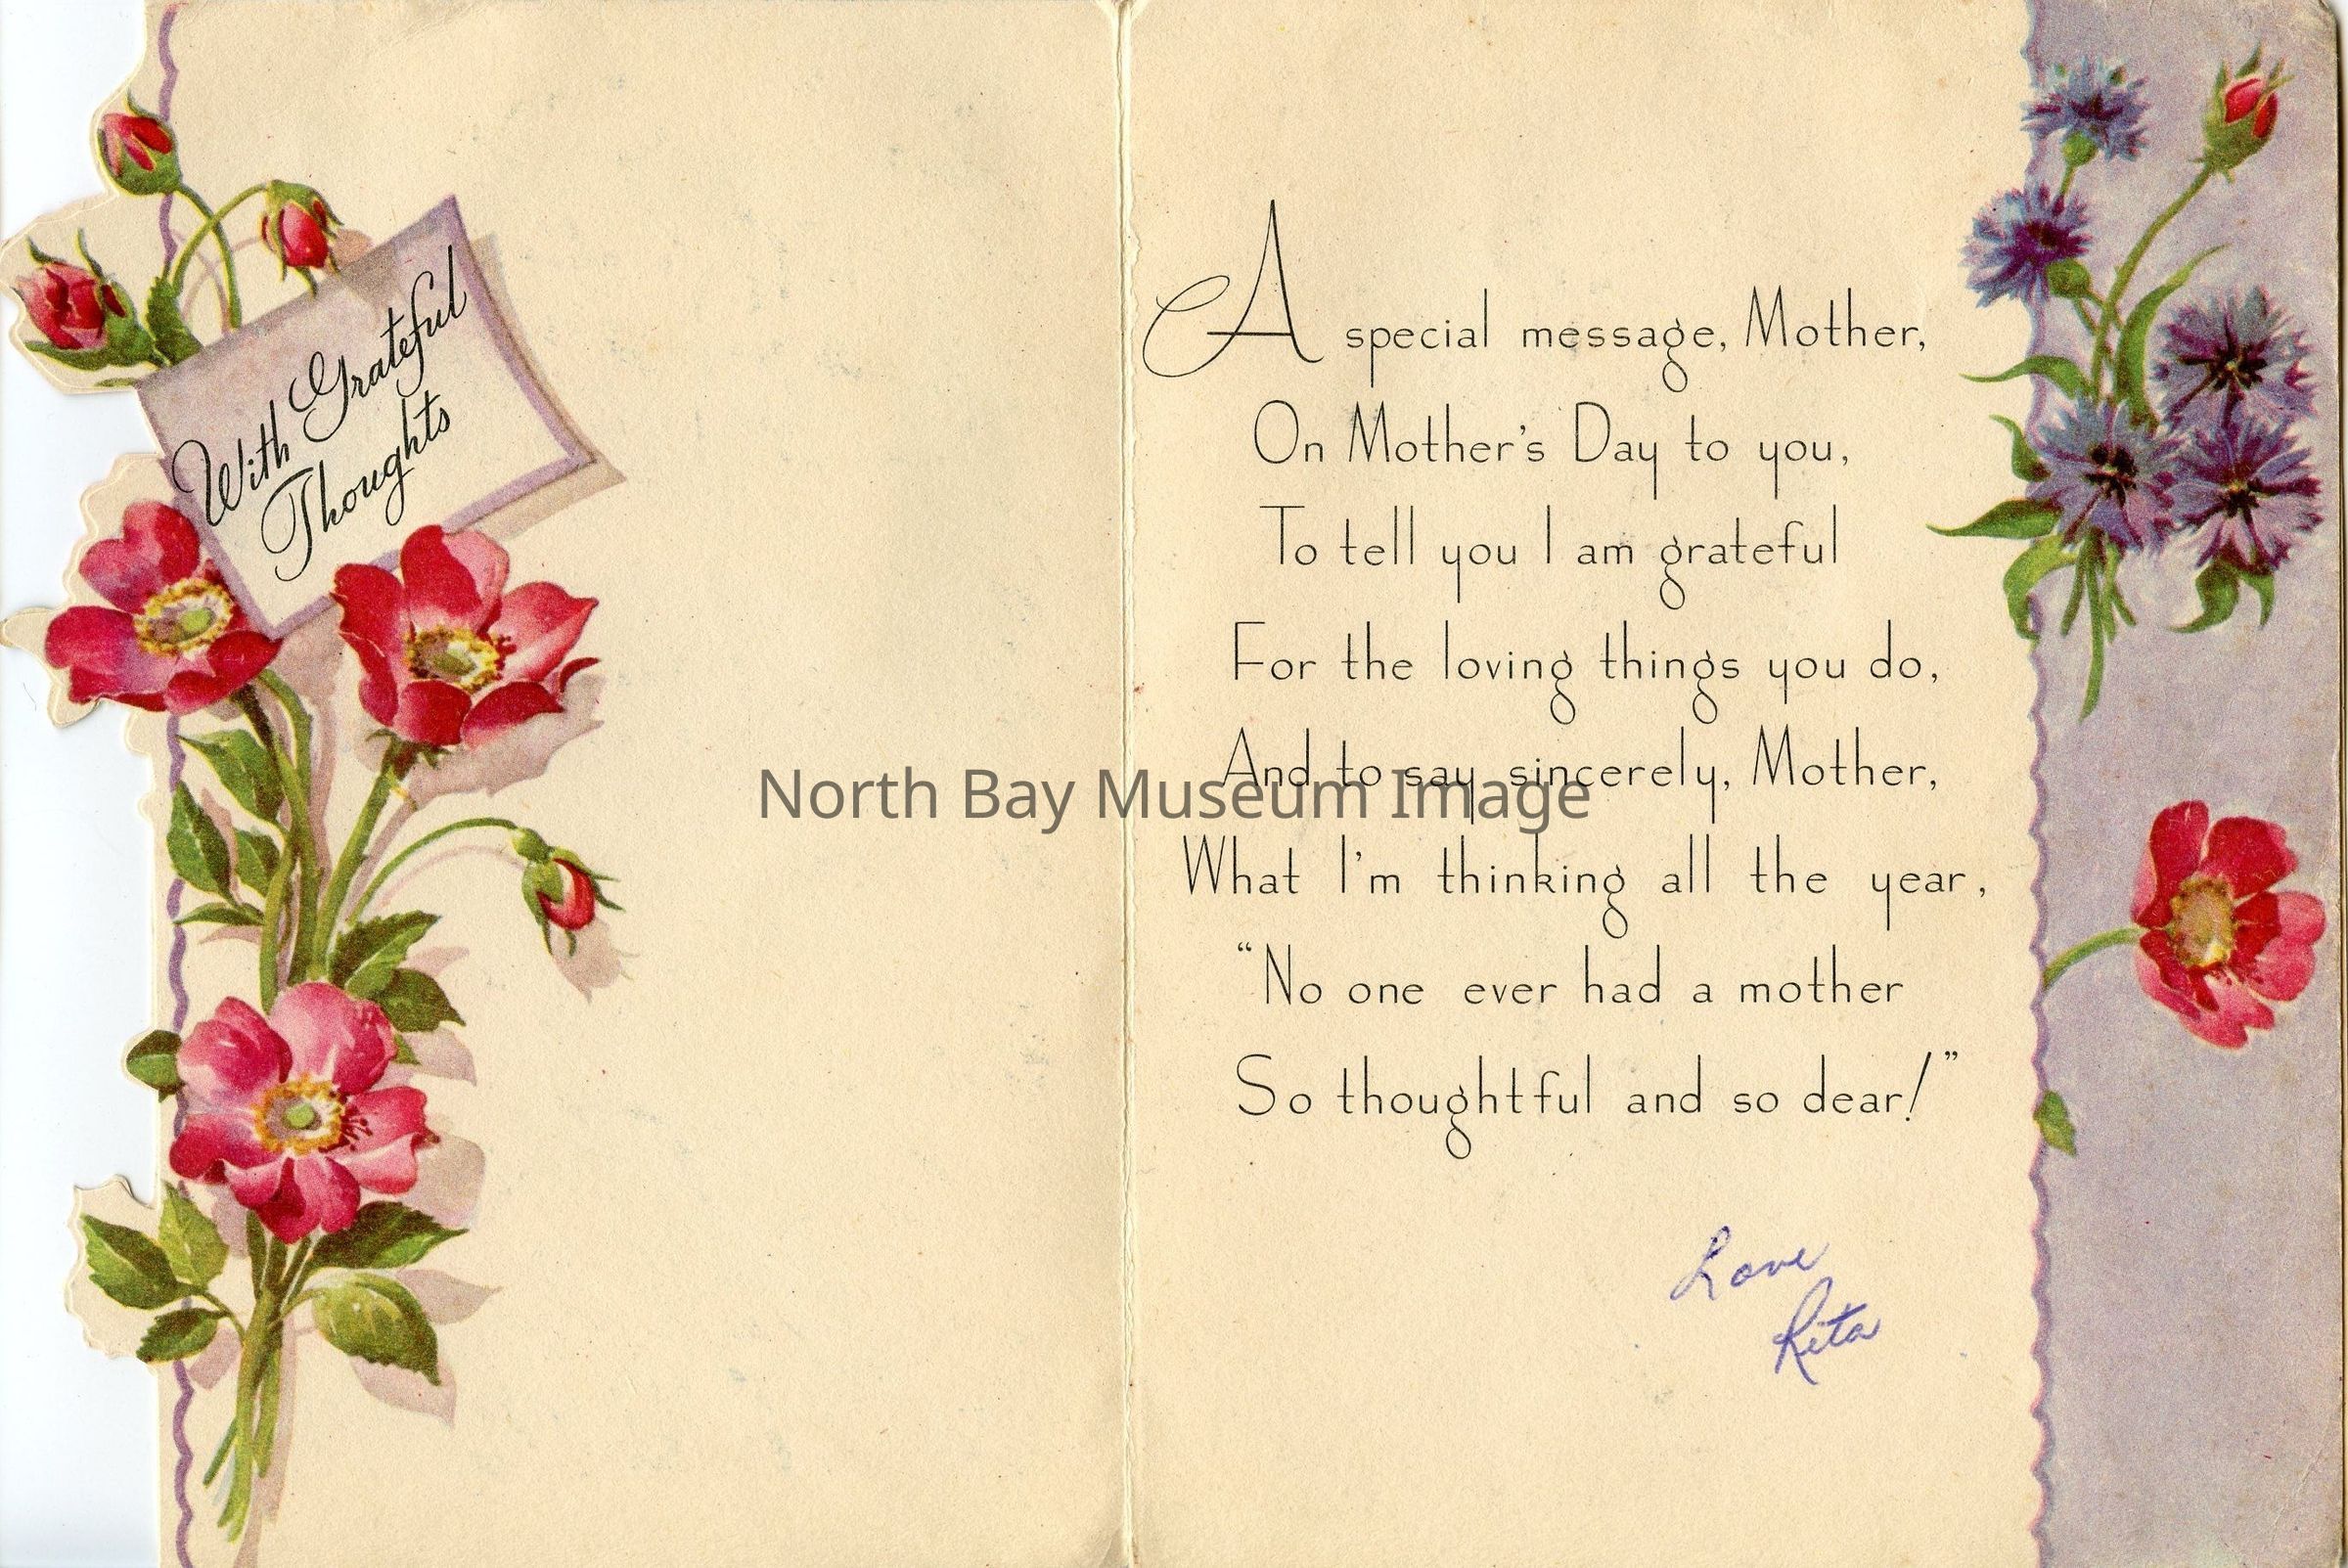 With Grateful
Thoughts
A special message, Mother,
On Mother's Day to you,
To tell you I am grateful
For the loving things you do,
And to say sincerely, Mother,
What I'm thinking all the year,
“No one ever had a mother
So thoughtful and so dear!”
Love
Rita
North Bay Museum Image